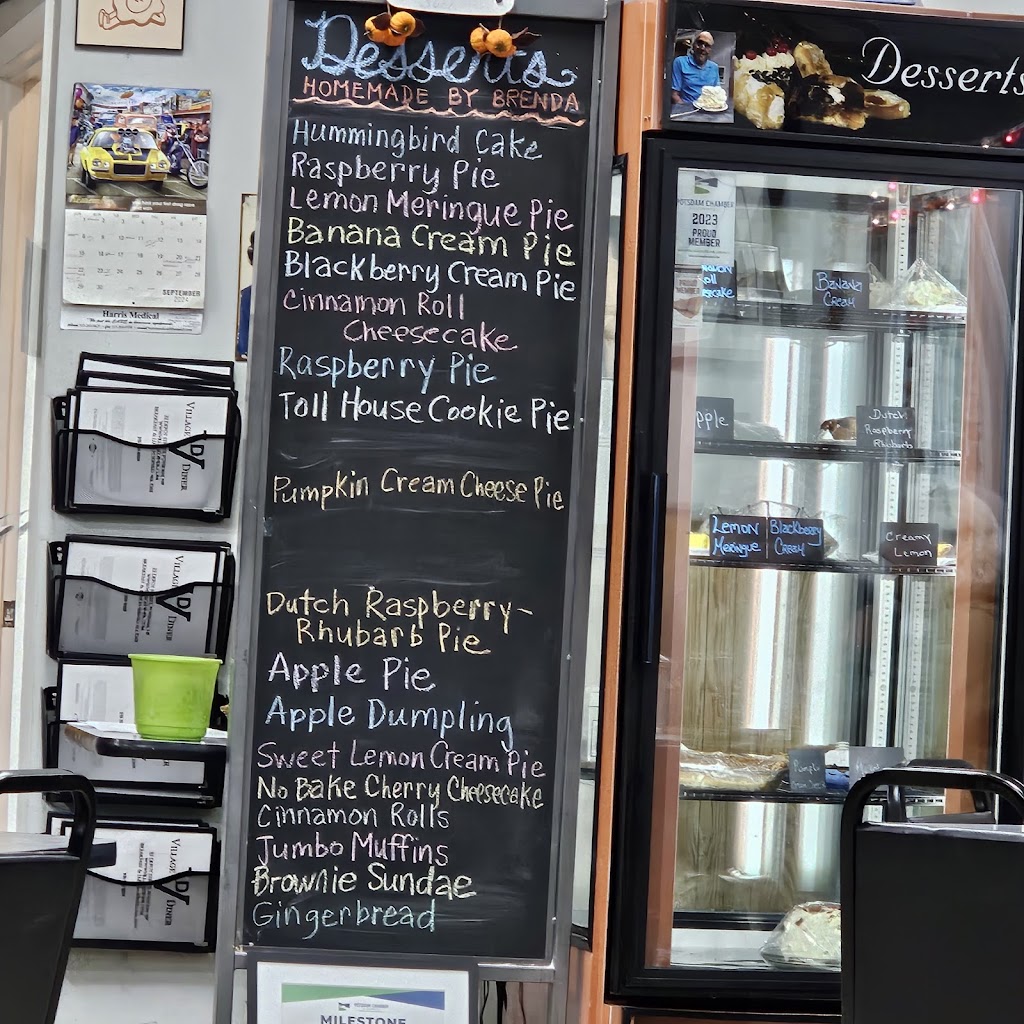 Desserts
HOMEMADE BY BRENDA
Hummingbird Cake
Raspberry Pie
Lemon Meringue Pie
Banana Cream Pie
Blackberry Cream Pie
Cinnamon Roll
Cheesecake
Raspberry Pie
Toll House Cookie Pie
Pumpkin Cream Cheese Pie
Dutch Raspberry-
Rhubarb Pie
Apple Pie
Apple Dumpling
Sweet Lemon Cream Pie
No Bake Cherry Cheesecake
Cinnamon Rolls
Jumbo Muffins
Brownie Sundae
Gingerbread
MILESTONE
SEPTEMBER
2024
Harris Medical
VILLAGE DINER
VILLAGE DINER
VILLAGE DINER
Desserts
POTSDAM CHAMBER
2023
PROUD
MEMBER
Banana
Cream
Dutch
Raspberry
Rhubarb
Lemon
Meringue
Blackberry
Cream
Creamy
Lemon
Pumpkin